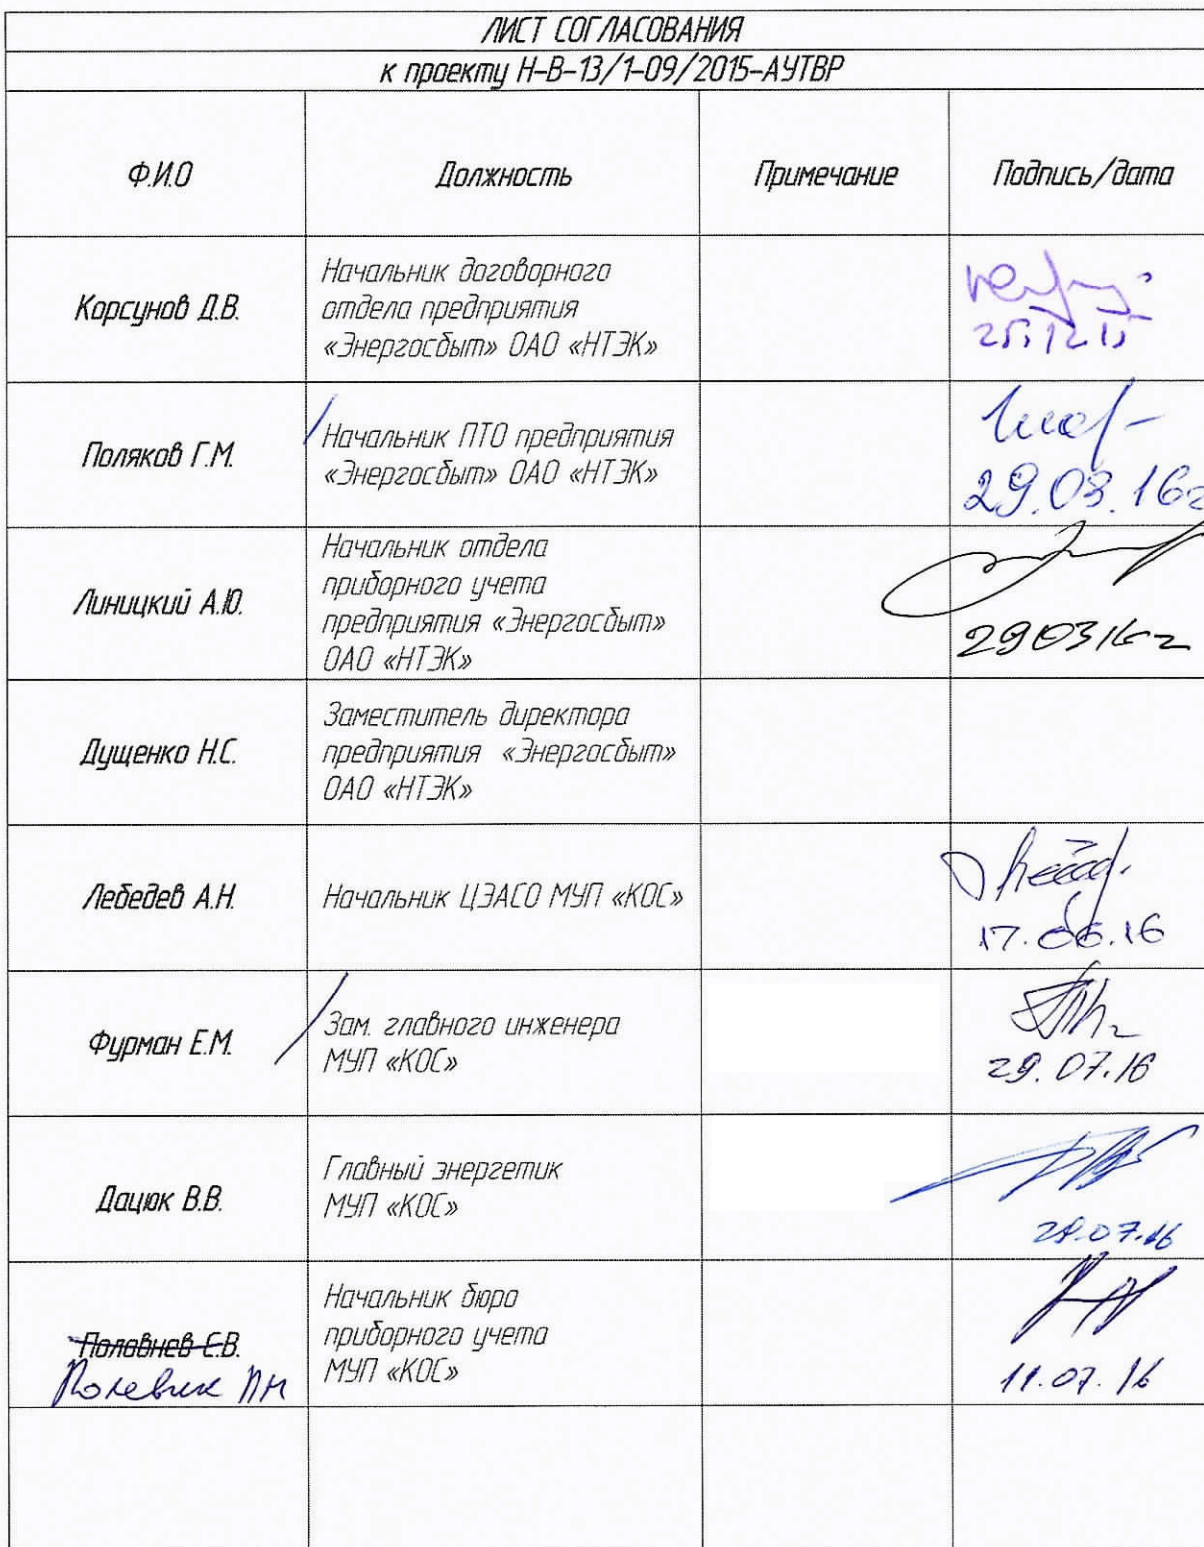 ЛИСТ СОГЛАСОВАНИЯ
к проекту Н-В-13/1-09/2015-АУТВР
Ф.И.О
Должность
Примечание
Подпись/дата
Корсунов Д.В.
Начальник договорного
отдела предприятия
«Энергосбыт» ОАО «НТЭК»
25.12.15
Поляков Г.М.
Начальник ПТО предприятия
«Энергосбыт» ОАО «НТЭК»
29.03.16г
Линицкий А.Ю.
Начальник отдела
приборного учета
предприятия «Энергосбыт»
ОАО «НТЭК»
290316г
Дущенко Н.С.
Заместитель директора
предприятия «Энергосбыт»
ОАО «НТЭК»
Лебедев А.Н.
Начальник ЦЭАСО МУП «КОС»
17.06.16
Фурман Е.М.
Зам. главного инженера
МУП «КОС»
29.07.16
Дацюк В.В.
Главный энергетик
МУП «КОС»
29.07.16
Половнев Е.В.
Начальник бюро
приборного учета
МУП «КОС»
11.07.16